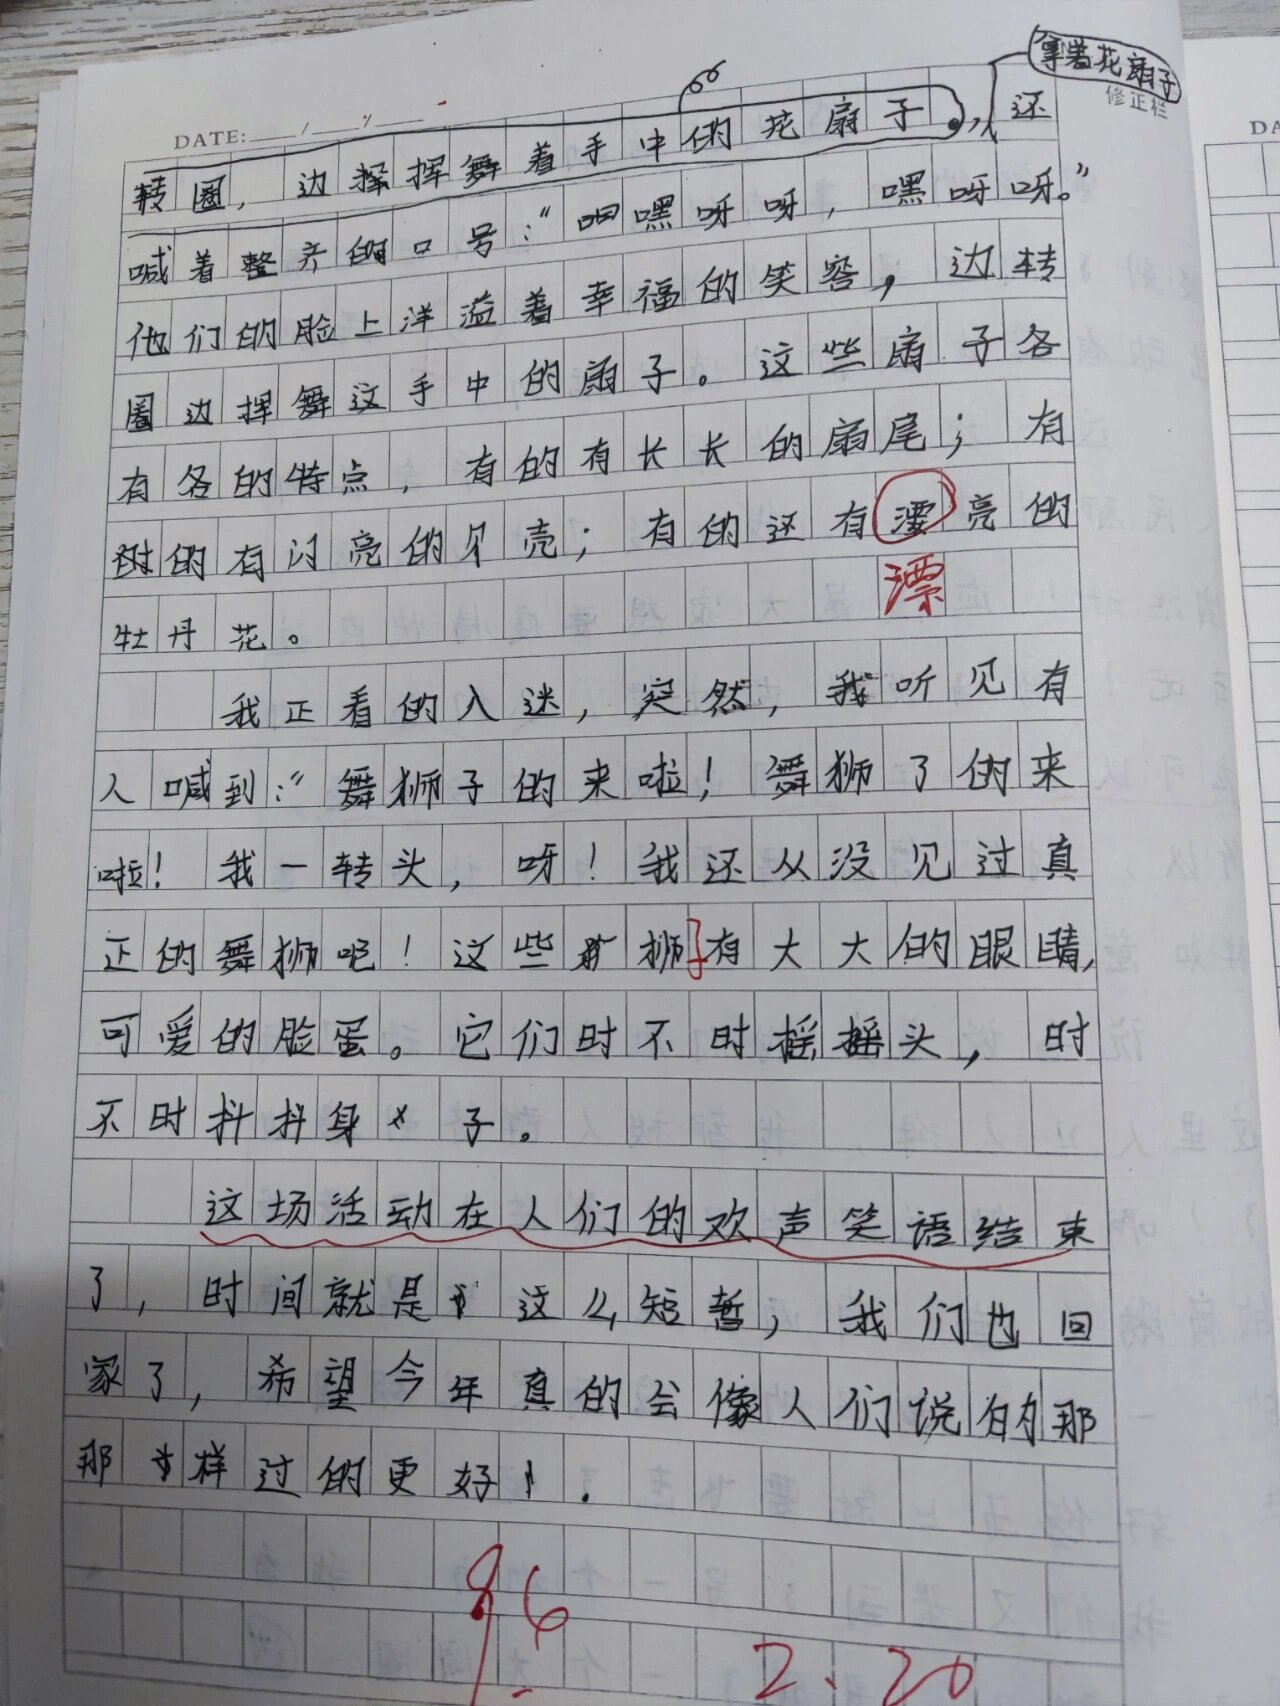 拿着花扇子
修正栏
DATE: / /
转圈，边挥挥舞着手中的花扇子，还
喊着整齐的口号：“嘿呀呀，嘿呀呀。”
他们的脸上洋溢着幸福的笑容，边转
圈边挥舞这手中的扇子。这些扇子各
有各的特点，有的有长长的扇尾；有
的有闪亮的贝壳；有的还有漂亮的
漂
牡丹花。
我正看的入迷，突然，我听见有
人喊到：“舞狮子的来啦！舞狮了的来
啦！我一转头，呀！我还从没见过真
正的舞狮吧！这些狮子有大大的眼睛，
可爱的脸蛋。它们时不时摇摇头，时
不时抖抖身子。
这场活动在人们的欢声笑语结束
了，时间就是这么短暂，我们也回
家了，希望今年真的会像人们说的那
那样过的更好！
96
2.20
DA